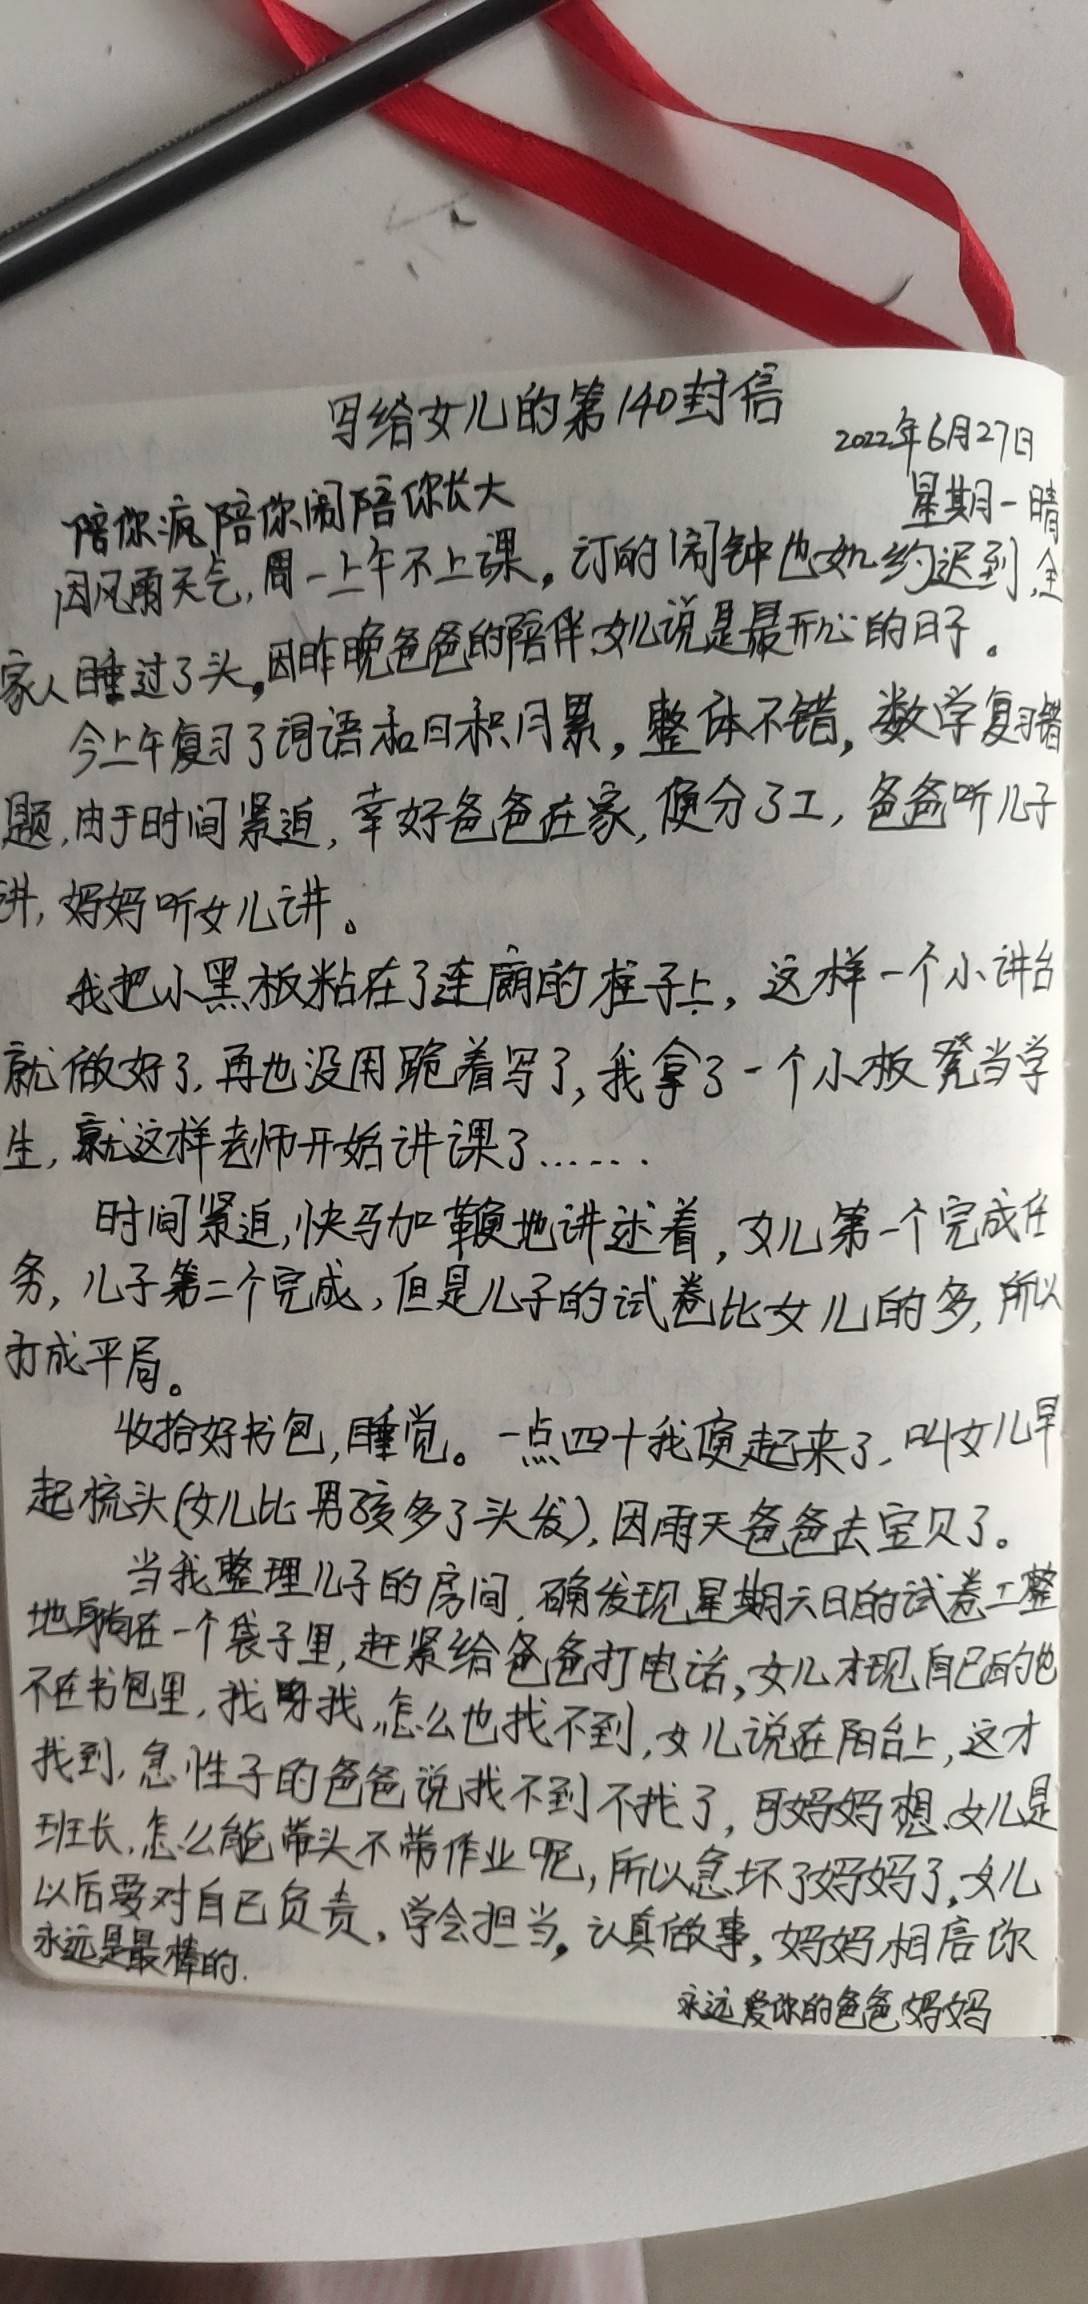 写给女儿的第140封信
2022年6月27日
星期一 晴
陪你疯陪你闹陪你长大
因风雨天气,周一上午不上课。订的闹钟也如约迟到,全
家人睡过了头。因昨晚爸爸的陪伴,女儿说是最开心的日子。
今上午复习了词语和日积月累,整体不错,数学复习错
题,由于时间紧迫,幸好爸爸在家,便分了工,爸爸听儿子
讲,妈妈听女儿讲。
我把小黑板粘在了连廊的柱子上,这样一个小讲台
就做好了,再也没用跪着写了,我拿了一个小板凳当学
生,就这样老师开始讲课了……
时间紧迫,快马加鞭地讲述着,女儿第一个完成任
务,儿子第二个完成,但是儿子的试卷比女儿的多,所以
打成平局。
收拾好书包,睡觉。一点四十我便起来了,叫女儿早
起梳头(女儿比男孩多了头发),因雨天爸爸去宝贝了。
当我整理儿子的房间,确发现星期六日的试卷工整
地躺在一个袋子里,赶紧给爸爸打电话,女儿才现自己的也
不在书包里,找呀找,怎么也找不到,女儿说在阳台上,这才
找到,急性子的爸爸说找不到不找了,可妈妈想,女儿是
班长,怎么能带头不带作业呢,所以急坏了妈妈了,女儿
以后要对自己负责,学会担当,认真做事,妈妈相信你
永远是最棒的.
永远爱你的爸爸妈妈